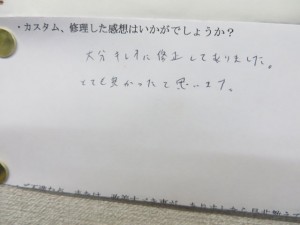 ・カスタム、修理した感想はいかがでしょうか？
大分キレイに修正してありました。
とても良かったて思います。